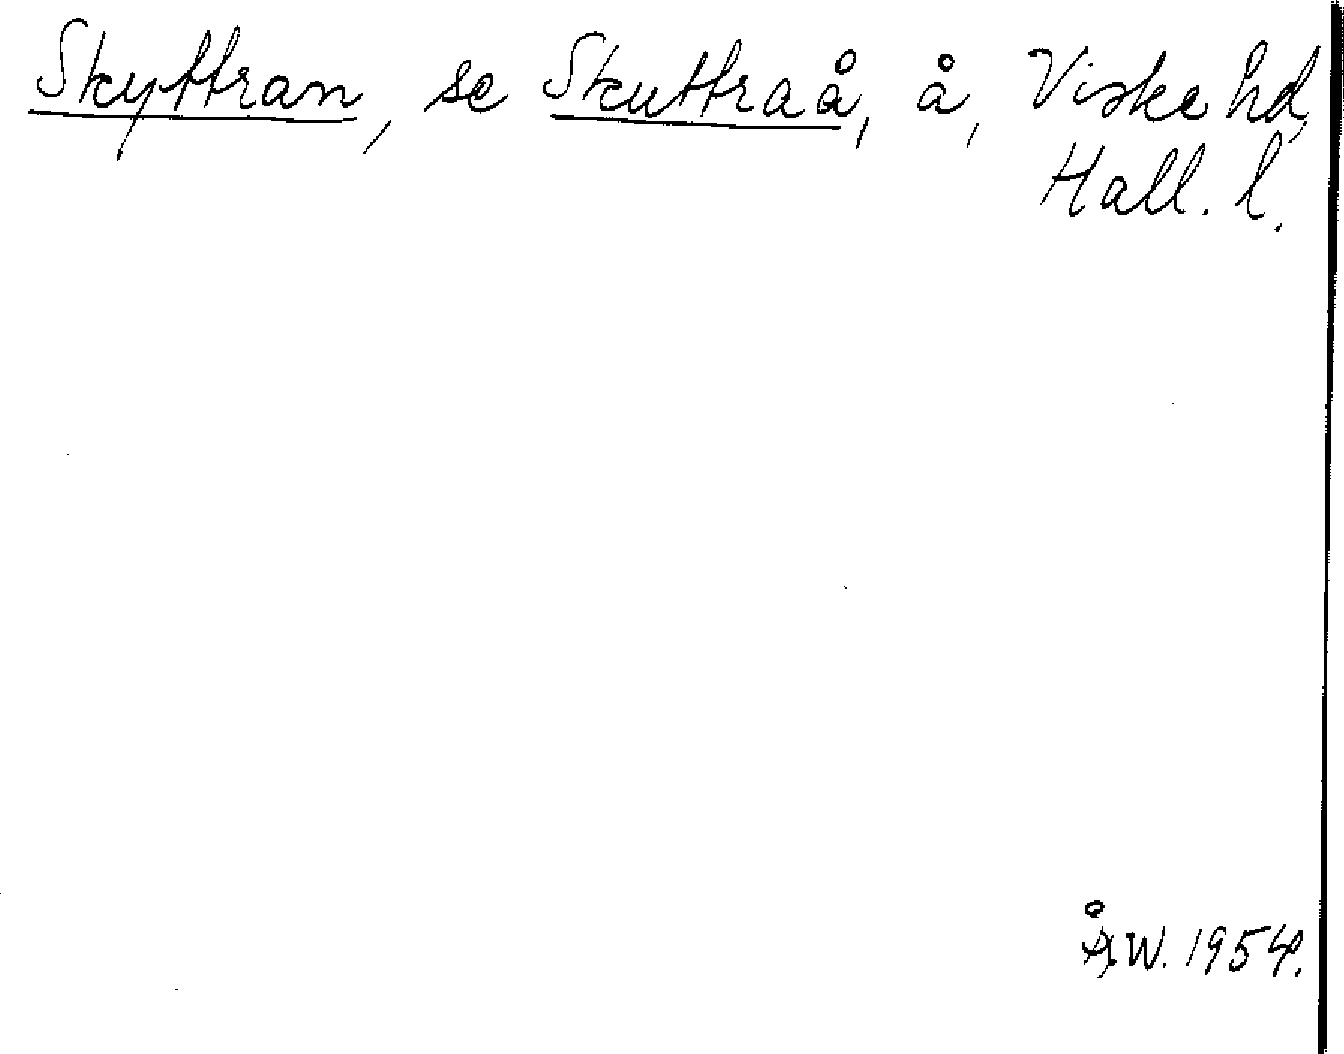 Skyttran, se Skuttraå, å, Viske hd,
Hall. l.
Å.W. 1954.